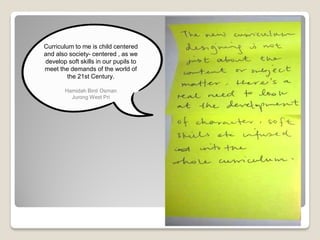 Curriculum to me is child centered
and also society- centered , as we
develop soft skills in our pupils to
meet the demands of the world of
the 21st Century.
Hamidah Binti Osman
Jurong West Pri
The new curriculum
designing is not
just about the
content or subject
matter. There's a
real need to look
at the development
of character. Soft
skills are infused
into the
whole curriculum.